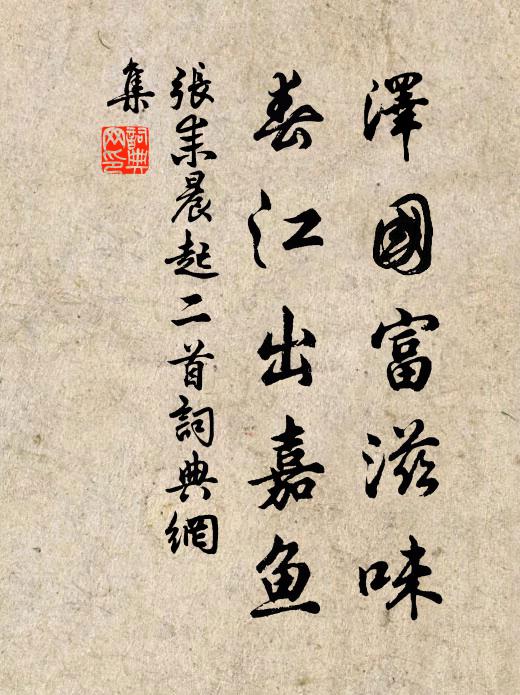 澤國富滋味
春江出嘉魚
張耒晨起二首詞典網
集
詞典
网印